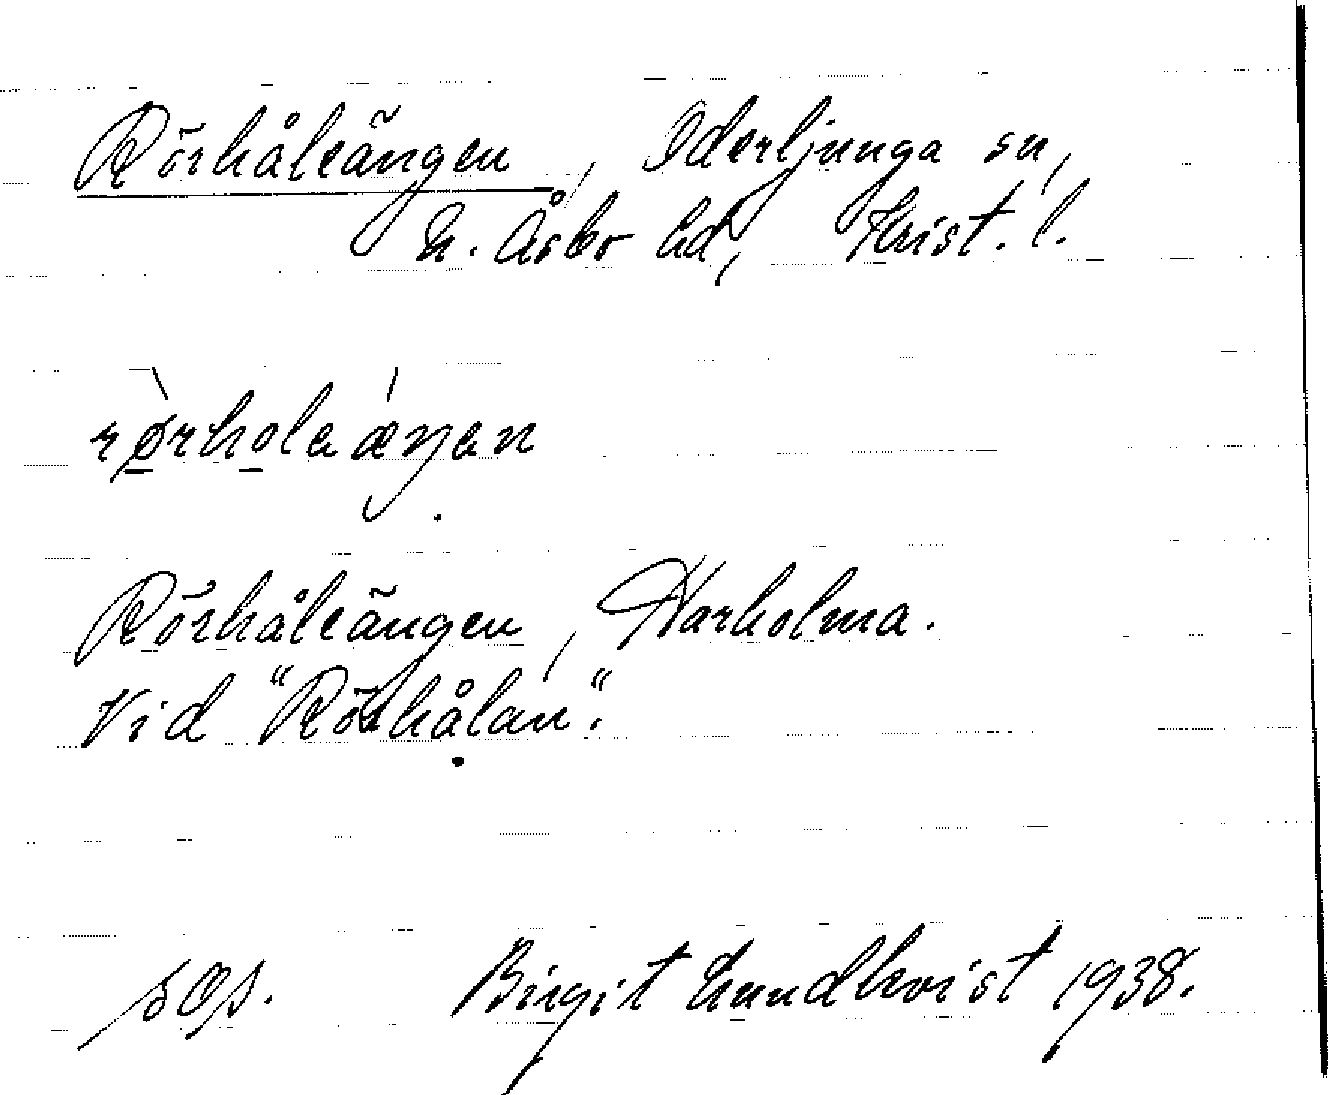 Rörhåleängen, Oderljunga sn,
N. Åsbo hd, Krist. l.
rørholaæŋan
Rörhåleängen, Harholma.
Vid "Rörhålan".
sOp. Birgit Lundkvist 1938.